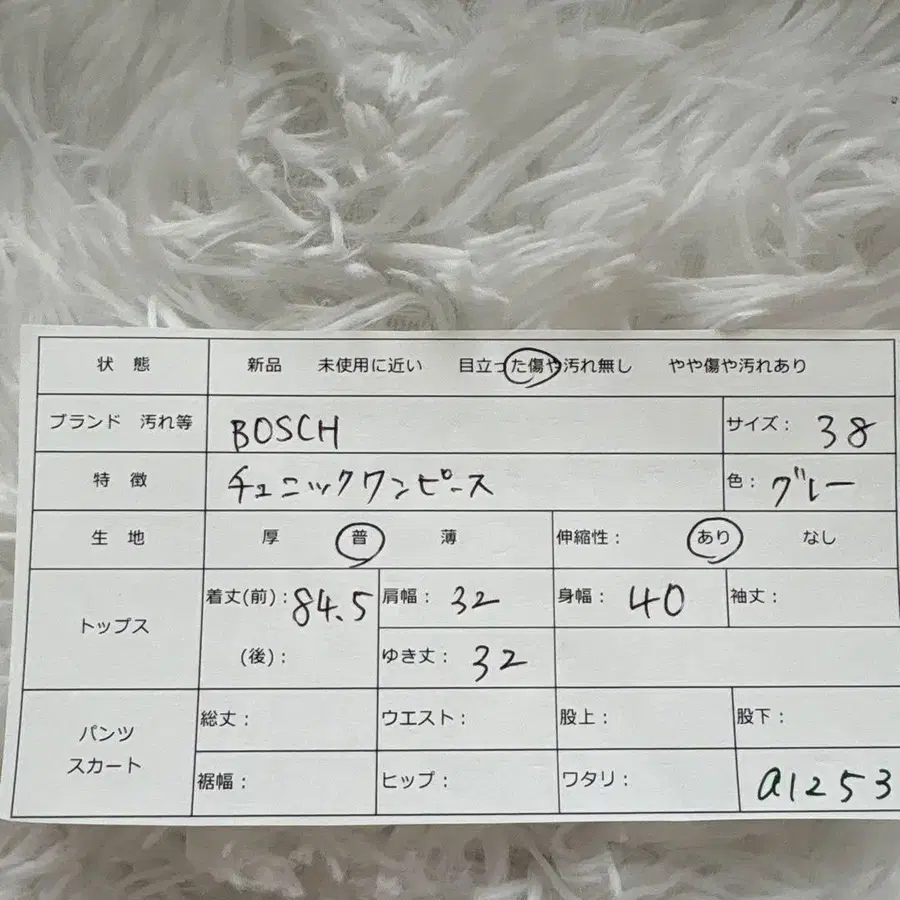 状 態 新品 未使用に近い 目立った傷や汚れ無し やや傷や汚れあり
ブランド 汚れ等 BOSCH サイズ： 38
特 徴 チュニックワンピース 色： グレー
生 地 厚 普 薄 伸縮性： あり なし
トップス 着丈(前)： 84.5 肩幅： 32 身幅： 40 袖丈：
(後)： ゆき丈： 32
パンツ スカート 総丈： ウエスト： 股上： 股下：
裾幅： ヒップ： ワタリ： a1253